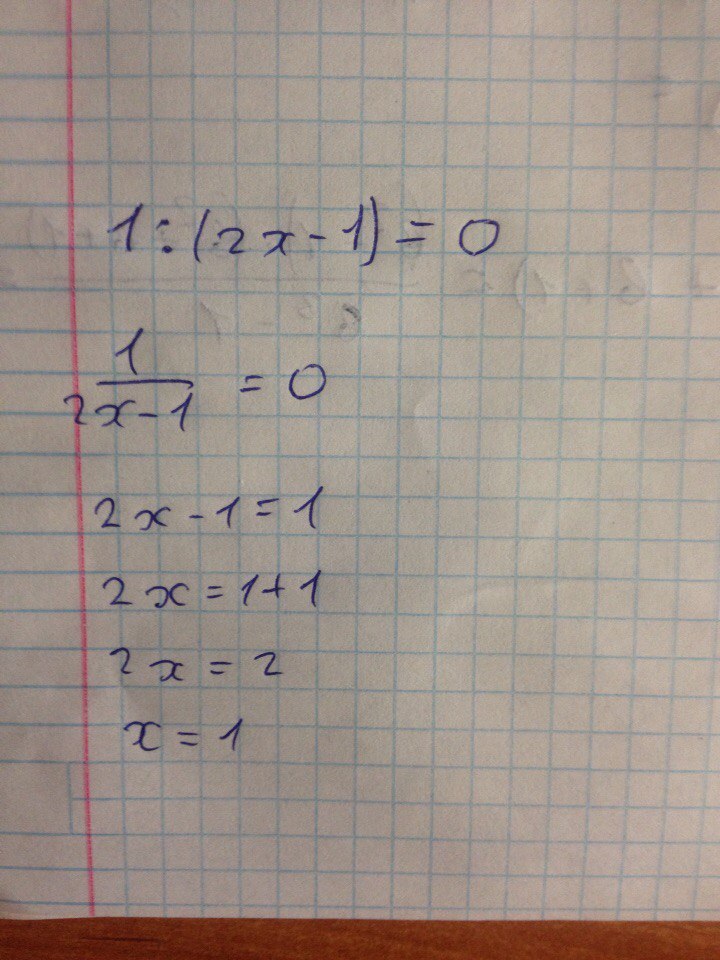 1:(2x-1)=0
1
2x-1 = 0
2x-1=1
2x=1+1
2x=2
x=1